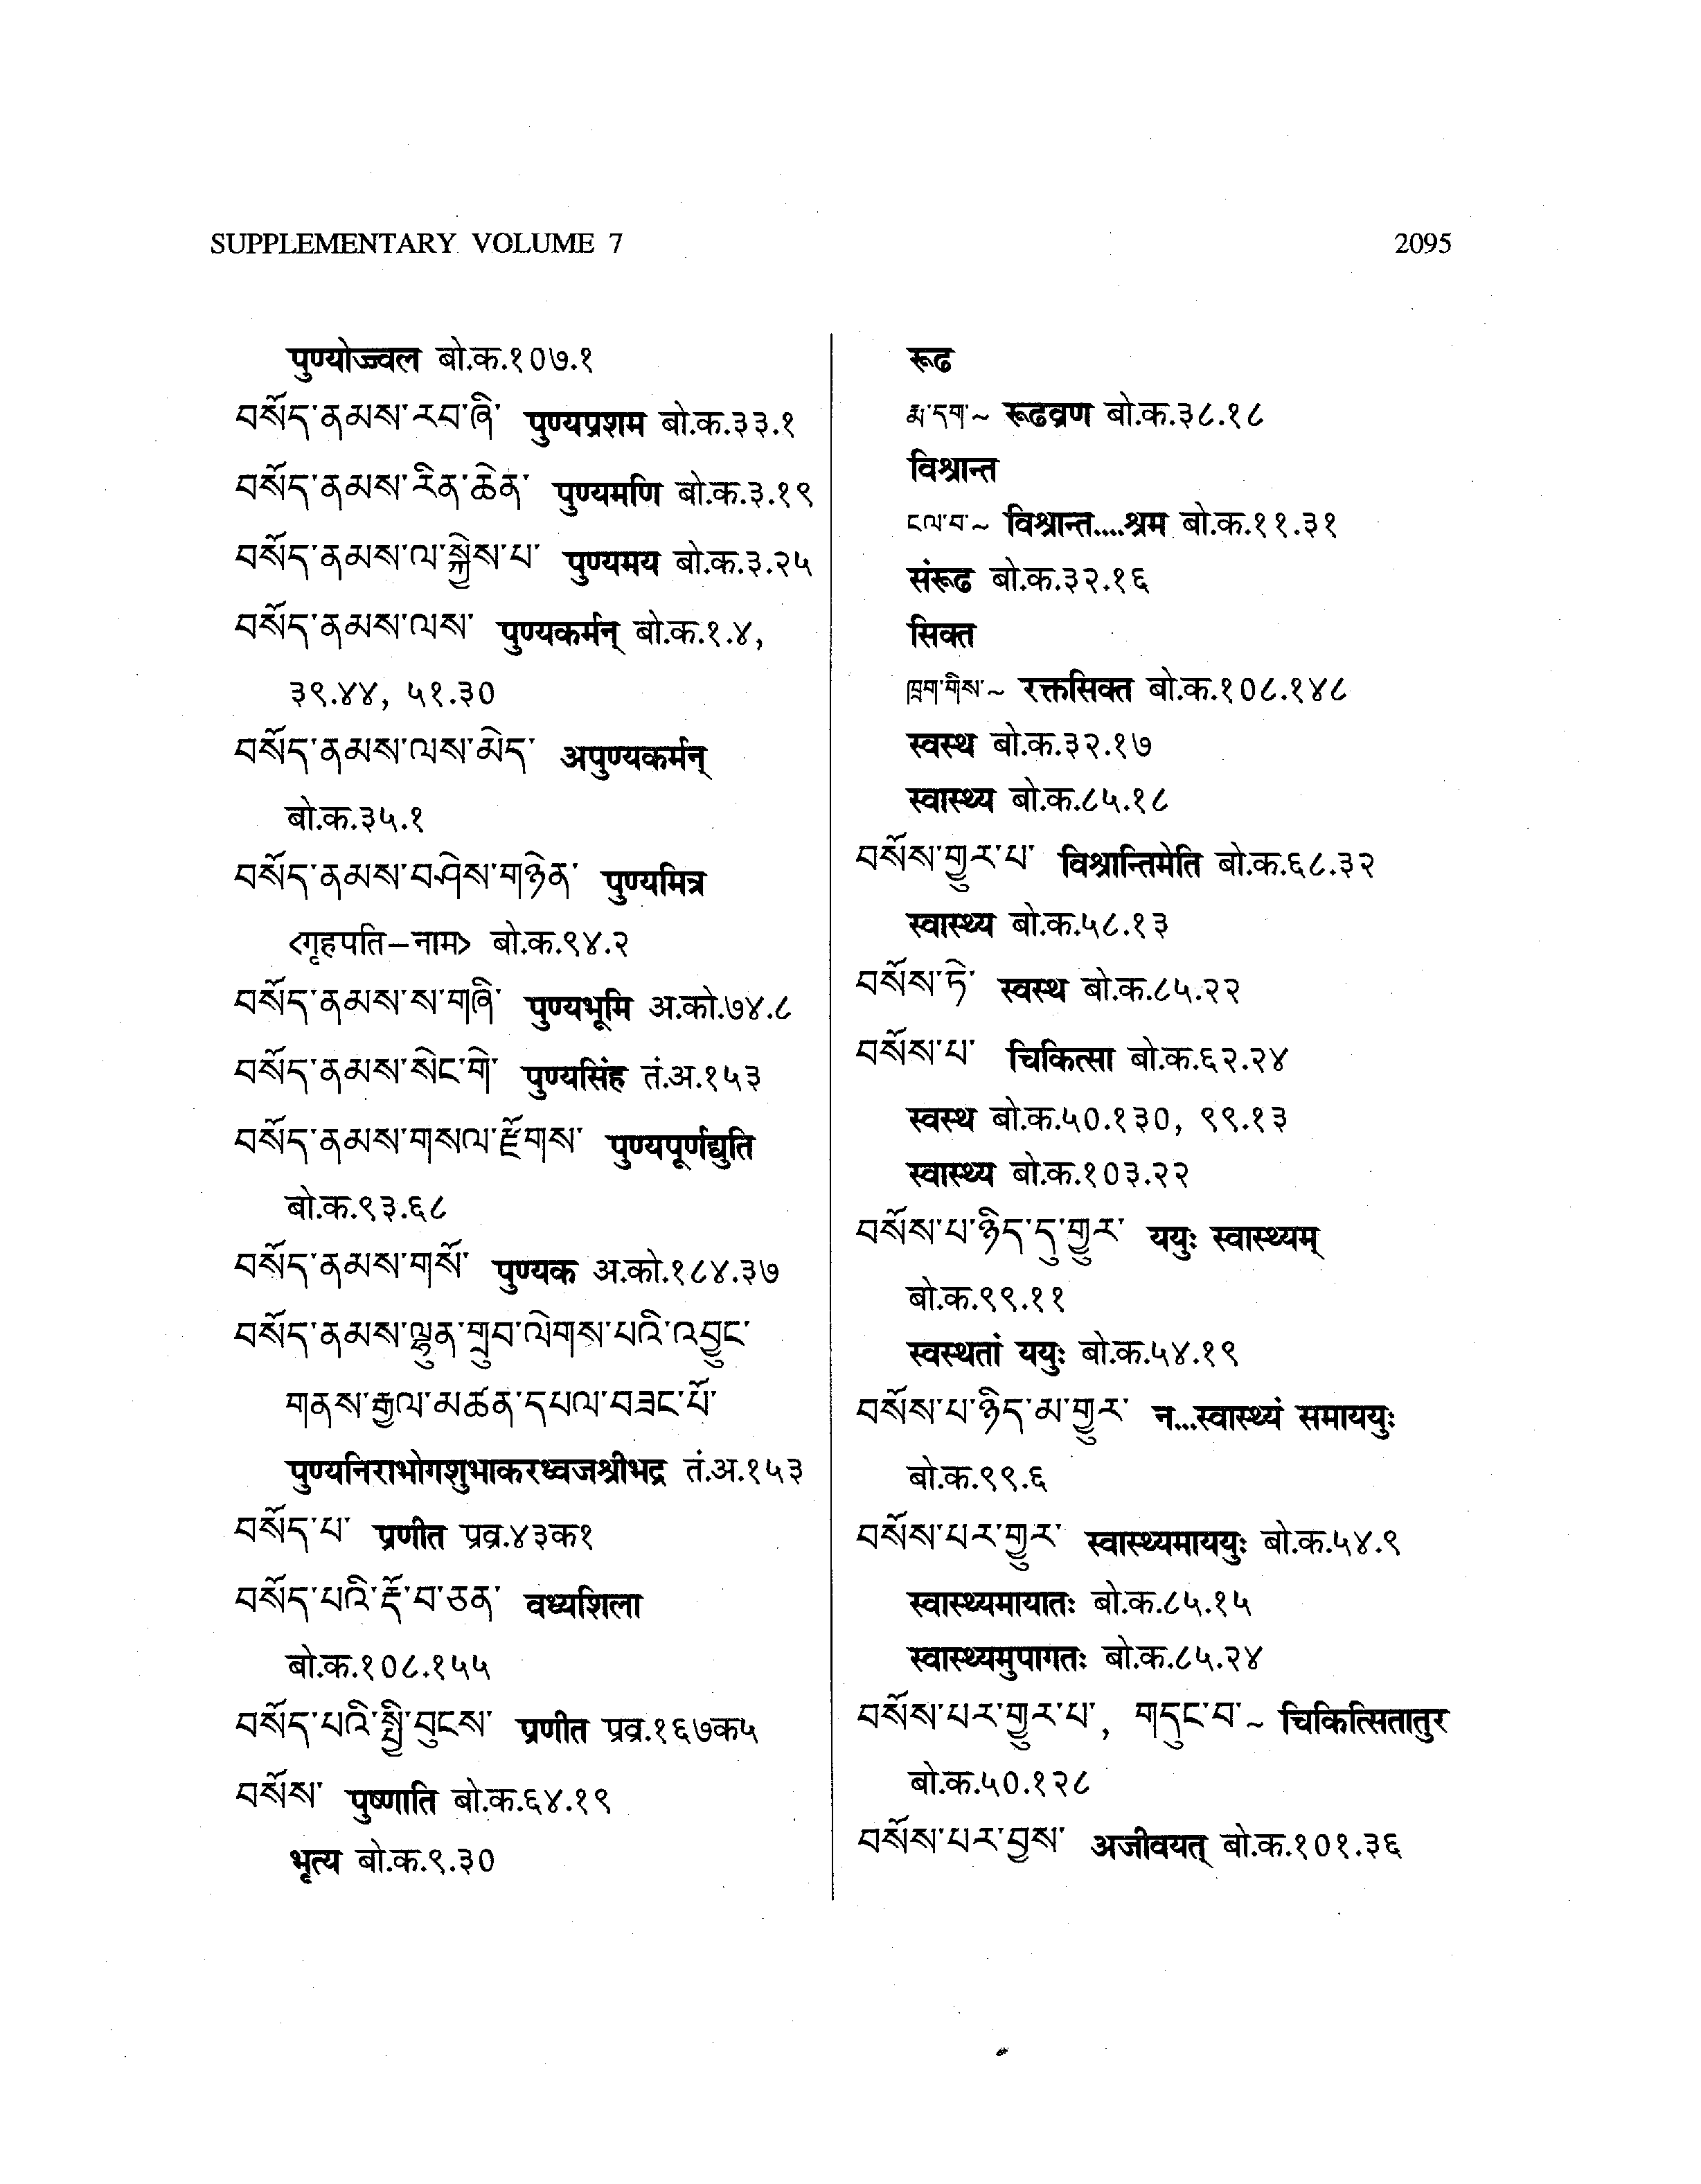 SUPPLEMENTARY VOLUME 7
2095
पुण्योज्ज्वल बो.क.१०७.१
བསོད་ནམས་རབ་ཞི་ पुण्यप्रशम बो.क.३३.१
བསོད་ནམས་རིན་ཆེན་ पुण्यमणि बो.क.३.१९
བསོད་ནམས་ལ་སྐྱེས་པ་ पुण्यमय बो.क.३.२५
བསོད་ནམས་ལས་ पुण्यकर्मन् बो.क.१.४,
३९.४४, ५१.३०
བསོད་ནམས་ལས་མེད་ अपुण्यकर्मन्
बो.क.३५.१
བསོད་ནམས་བཤེས་གཉེན་ पुण्यमित्र
<गृहपति–नाम> बो.क.९४.२
བསོད་ནམས་ས་གཞི་ पुण्यभूमि अ.को.७४.८
བསོད་ནམས་སེང་གེ་ पुण्यसिंह तं.अ.१५३
བསོད་ནམས་གསལ་རྫོགས་ पुण्यपूर्णद्युति
बो.क.९३.६८
བསོད་ནམས་གསོ་ पुण्यक अ.को.१८४.३७
བསོད་ནམས་ལྷུན་གྲུབ་ལེགས་པའི་འབྱུང་
གནས་རྒྱལ་མཚན་དཔལ་བཟང་པོ་
पुण्यनिराभोगशुभाकरध्वजश्रीभद्र तं.अ.१५३
བསོད་པ་ प्रणीत प्रव्र.४३क१
བསོད་པའི་རྡོ་བ་ཅན་ वध्यशिला
बो.क.१०८.१५५
བསོད་པའི་སྤྱི་བུངས་ प्रणीत प्रव्र.१६७क५
བསོས་ पुष्णाति बो.क.६४.१९
भृत्य बो.क.९.३०
रूढ
རྨ་དག་~ रूढव्रण बो.क.३८.१८
विश्रान्त
ངལ་བ་~ विश्रान्त....श्रम बो.क.११.३१
संरूढ बो.क.३२.१६
सिक्त
ཁྲག་གིས་~ रक्तसिक्त बो.क.१०८.१४८
स्वस्थ बो.क.३२.१७
स्वास्थ्य बो.क.८५.१८
བསོས་གྱུར་པ་ विश्रान्तिमेति बो.क.६८.३२
स्वास्थ्य बो.क.५८.१३
བསོས་ཏེ་ स्वस्थ बो.क.८५.२२
བསོས་པ་ चिकित्सा बो.क.६२.२४
स्वस्थ बो.क.५०.१३०, ९९.१३
स्वास्थ्य बो.क.१०३.२२
བསོས་པ་ཉིད་དུ་གྱུར་ ययुः स्वास्थ्यम्
बो.क.९९.११
स्वस्थतां ययुः बो.क.५४.१९
བསོས་པ་ཉིད་མ་གྱུར་ न...स्वास्थ्यं समाययुः
बो.क.९९.६
བསོས་པར་གྱུར་ स्वास्थ्यमाययुः बो.क.५४.९
स्वास्थ्यमायातः बो.क.८५.१५
स्वास्थ्यमुपागतः बो.क.८५.२४
བསོས་པར་གྱུར་པ་, གདུང་བ་~ चिकित्सितातुर
बो.क.५०.१२८
བསོས་པར་བྱས་ अजीवयत् बो.क.१०१.३६